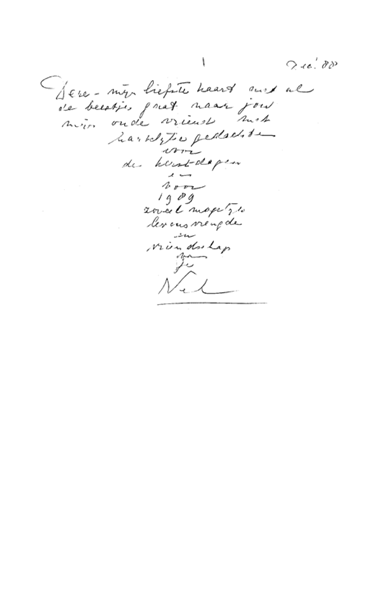 Dec '88
Deze - mijn liefste kaart met al
de beestjes gaat naar jou
mijn oude vriend met
hartelijke gedachten
voor
de kerstdagen
en
voor
1989
zoveel mogelijk
levensvreugde
en
vriendschap
van
je
Nel